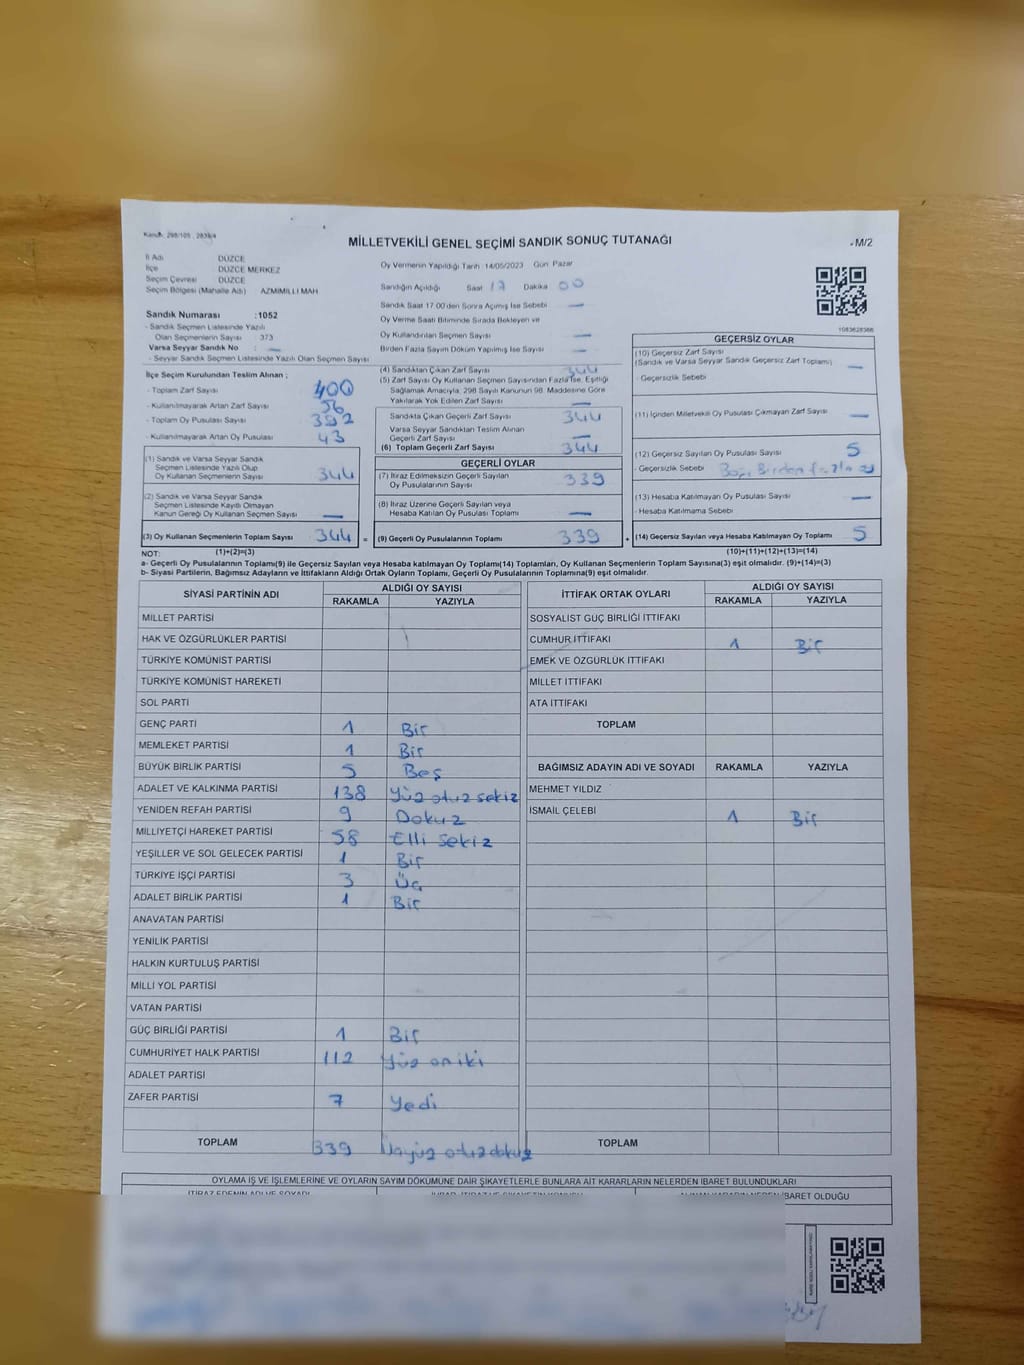 Kanun: 298/105 , 2839/4
MİLLETVEKİLİ GENEL SEÇİMİ SANDIK SONUÇ TUTANAĞI
- M/2
İl Adı DÜZCE
İlçe DÜZCE MERKEZ
Seçim Çevresi DÜZCE
Seçim Bölgesi (Mahalle Adı) AZMİMİLLİ MAH
Oy Vermenin Yapıldığı Tarih 14/05/2023 Gün Pazar
Sandığın Açıldığı Saat 17 Dakika 00
Sandık Saat 17.00'den Sonra Açılmış İse Sebebi —
Oy Verme Saati Bitiminde Sırada Bekleyen ve
Oy Kullandırılan Seçmen Sayısı —
Birden Fazla Sayım Döküm Yapılmış İse Sayısı —
1083628366
Sandık Numarası :1052
- Sandık Seçmen Listesinde Yazılı
Olan Seçmenlerin Sayısı 373
Varsa Seyyar Sandık No : —
- Seyyar Sandık Seçmen Listesinde Yazılı Olan Seçmen Sayısı
İlçe Seçim Kurulundan Teslim Alınan ;
- Toplam Zarf Sayısı 400
- Kullanılmayarak Artan Zarf Sayısı 56
- Toplam Oy Pusulası Sayısı
- Kullanılmayarak Artan Oy Pusulası 43
(1) Sandık ve Varsa Seyyar Sandık
Seçmen Listesinde Yazılı Olup
Oy Kullanan Seçmenlerin Sayısı 344
(2) Sandık ve Varsa Seyyar Sandık
Seçmen Listesinde Kayıtlı Olmayan
Kanun Gereği Oy Kullanan Seçmen Sayısı —
(3) Oy Kullanan Seçmenlerin Toplam Sayısı 344 =
(4) Sandıktan Çıkan Zarf Sayısı 344
(5) Zarf Sayısı Oy Kullanan Seçmen Sayısından Fazla İse, Eşitliği
Sağlamak Amacıyla, 298 Sayılı Kanunun 98. Maddesine Göre
Yakılarak Yok Edilen Zarf Sayısı —
Sandıkta Çıkan Geçerli Zarf Sayısı 344
Varsa Seyyar Sandıktan Teslim Alınan
Geçerli Zarf Sayısı —
(6) Toplam Geçerli Zarf Sayısı 344
GEÇERLİ OYLAR
(7) İtiraz Edilmeksizin Geçerli Sayılan
Oy Pusulalarının Sayısı 339
(8) İtiraz Üzerine Geçerli Sayılan veya
Hesaba Katılan Oy Pusulası Toplamı —
(9) Geçerli Oy Pusulalarının Toplamı 339 +
GEÇERSİZ OYLAR
(10) Geçersiz Zarf Sayısı
(Sandık ve Varsa Seyyar Sandık Geçersiz Zarf Toplamı) —
- Geçersizlik Sebebi
(11) İçinden Milletvekili Oy Pusulası Çıkmayan Zarf Sayısı —
(12) Geçersiz Sayılan Oy Pusulası Sayısı 5
- Geçersizlik Sebebi Birden fazla oy
(13) Hesaba Katılmayan Oy Pusulası Sayısı —
- Hesaba Katılmama Sebebi
(14) Geçersiz Sayılan veya Hesaba Katılmayan Oy Toplamı 5
NOT: (1)+(2)=(3) (10)+(11)+(12)+(13)=(14)
a- Geçerli Oy Pusulalarının Toplamı(9) ile Geçersiz Sayılan veya Hesaba katılmayan Oy Toplamı(14) Toplamları, Oy Kullanan Seçmenlerin Toplam Sayısına(3) eşit olmalıdır. (9)+(14)=(3)
b- Siyasi Partilerin, Bağımsız Adayların ve İttifakların Aldığı Ortak Oyların Toplamı, Geçerli Oy Pusulalarının Toplamına(9) eşit olmalıdır.
SİYASİ PARTİNİN ADI ALDIĞI OY SAYISI
RAKAMLA YAZIYLA
MİLLET PARTİSİ
HAK VE ÖZGÜRLÜKLER PARTİSİ
TÜRKİYE KOMÜNİST PARTİSİ
TÜRKİYE KOMÜNİST HAREKETİ
SOL PARTİ
GENÇ PARTİ 1 Bir
MEMLEKET PARTİSİ 1 Bir
BÜYÜK BİRLİK PARTİSİ 5 Beş
ADALET VE KALKINMA PARTİSİ 138 Yüz otuz sekiz
YENİDEN REFAH PARTİSİ 9 Dokuz
MİLLİYETÇİ HAREKET PARTİSİ 58 Elli sekiz
YEŞİLLER VE SOL GELECEK PARTİSİ 1 Bir
TÜRKİYE İŞÇİ PARTİSİ 3 Üç
ADALET BİRLİK PARTİSİ 1 Bir
ANAVATAN PARTİSİ
YENİLİK PARTİSİ
HALKIN KURTULUŞ PARTİSİ
MİLLİ YOL PARTİSİ
VATAN PARTİSİ
GÜÇ BİRLİĞİ PARTİSİ 1 Bir
CUMHURİYET HALK PARTİSİ 112 Yüz oniki
ADALET PARTİSİ
ZAFER PARTİSİ 7 Yedi
TOPLAM 339 Üçyüz otuz dokuz
İTTİFAK ORTAK OYLARI ALDIĞI OY SAYISI
RAKAMLA YAZIYLA
SOSYALİST GÜÇ BİRLİĞİ İTTİFAKI
CUMHUR İTTİFAKI 1 Bir
EMEK VE ÖZGÜRLÜK İTTİFAKI
MİLLET İTTİFAKI
ATA İTTİFAKI
TOPLAM
BAĞIMSIZ ADAYIN ADI VE SOYADI RAKAMLA YAZIYLA
MEHMET YILDIZ
İSMAİL ÇELEBİ 1 Bir
TOPLAM
OYLAMA İŞ VE İŞLEMLERİNE VE OYLARIN SAYIM DÖKÜMÜNE DAİR ŞİKAYETLERLE BUNLARA AİT KARARLARIN NELERDEN İBARET BULUNDUKLARI
İTİRAZ EDENİN ADI VE SOYADI
İBARET OLDUĞU